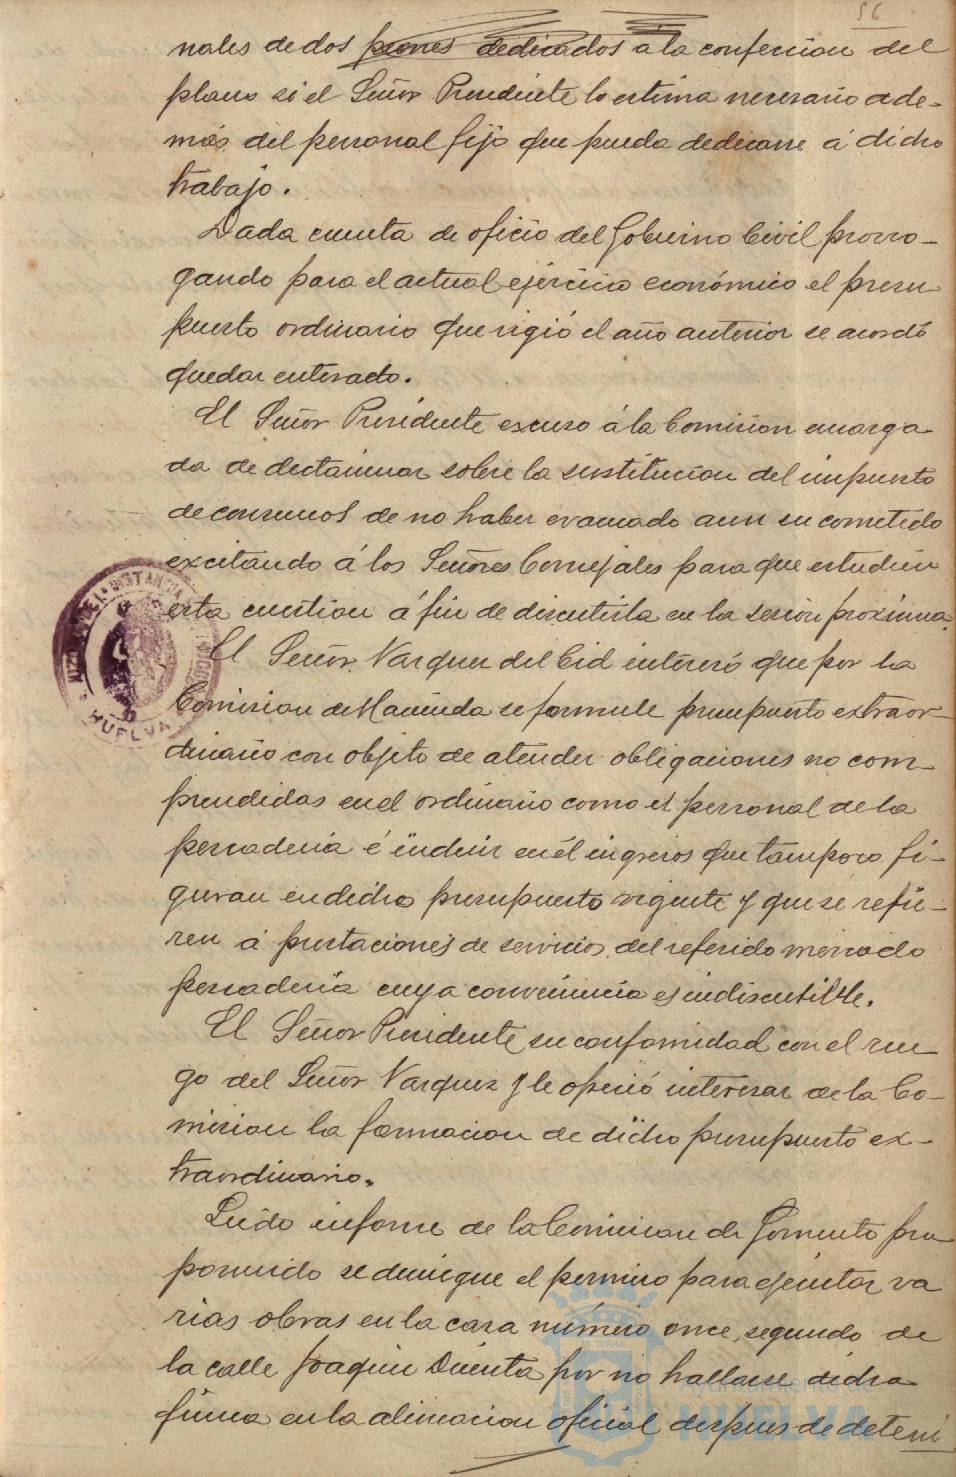 56
nales de dos peones dedicados a la confeccion del
plano si el Señor Presidente lo estima necesario ade-
más del personal fijo que pueda dedicarse á dicho
trabajo.
Dada cuenta de oficio del Gobierno Civil prorro-
gando para el actual ejercicio económico el presu
puesto ordinario que rigió el año anterior se acordó
quedar enterado.
El Señor Presidente escusó á la Comision encarga
da de dictaminar sobre la sustitucion del impuesto
de consumos de no haber evacuado aun su cometido
excitando á los Señores Concejales para que estudien
esta cuestion á fin de discutirla en la sesion proxima.
El Señor Vazquez del Cid interesó que por la
Comision de Hacienda se formule presupuesto extraor-
dinario con objeto de atender obligaciones no com-
prendidas en el ordinario como el personal de la
pescaderia é incluir en él ingresos que tampoco fi-
guran en dicho presupuesto vigente y que se refie-
ren á prestaciones de servicios del referido mercado
pescadería cuya conveniencia es indiscutible.
El Señor Presidente su conformidad con el rue
go del Señor Vazquez y le ofreció interesar de la Co-
mision la formacion de dicho presupuesto ex-
traordinario.
Leido informe de la Comision de Fomento pro
poniendo se deniegue el permiso para ejecutar va
rias obras en la casa número once, segundo de
la calle Joaquin Dicenta por no hallarse dicha
finca en la alineacion oficial despues de deteni
HUELVA
Ayuntamiento de
HUELVA